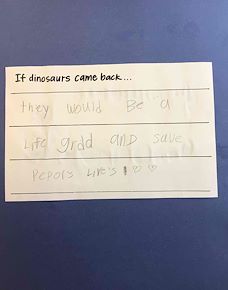 If dinosaurs came back...
they would Be a
Life grdd and save
Pepols Life's ! ♡ ♡